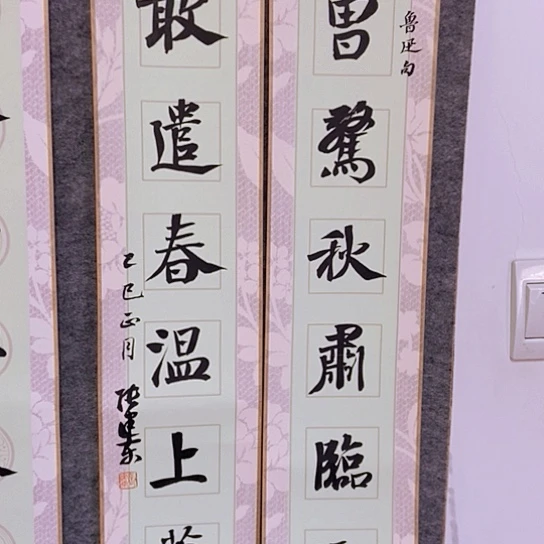 魯迅句
曾驚秋肅臨
敢遣春温上
乙巳正月